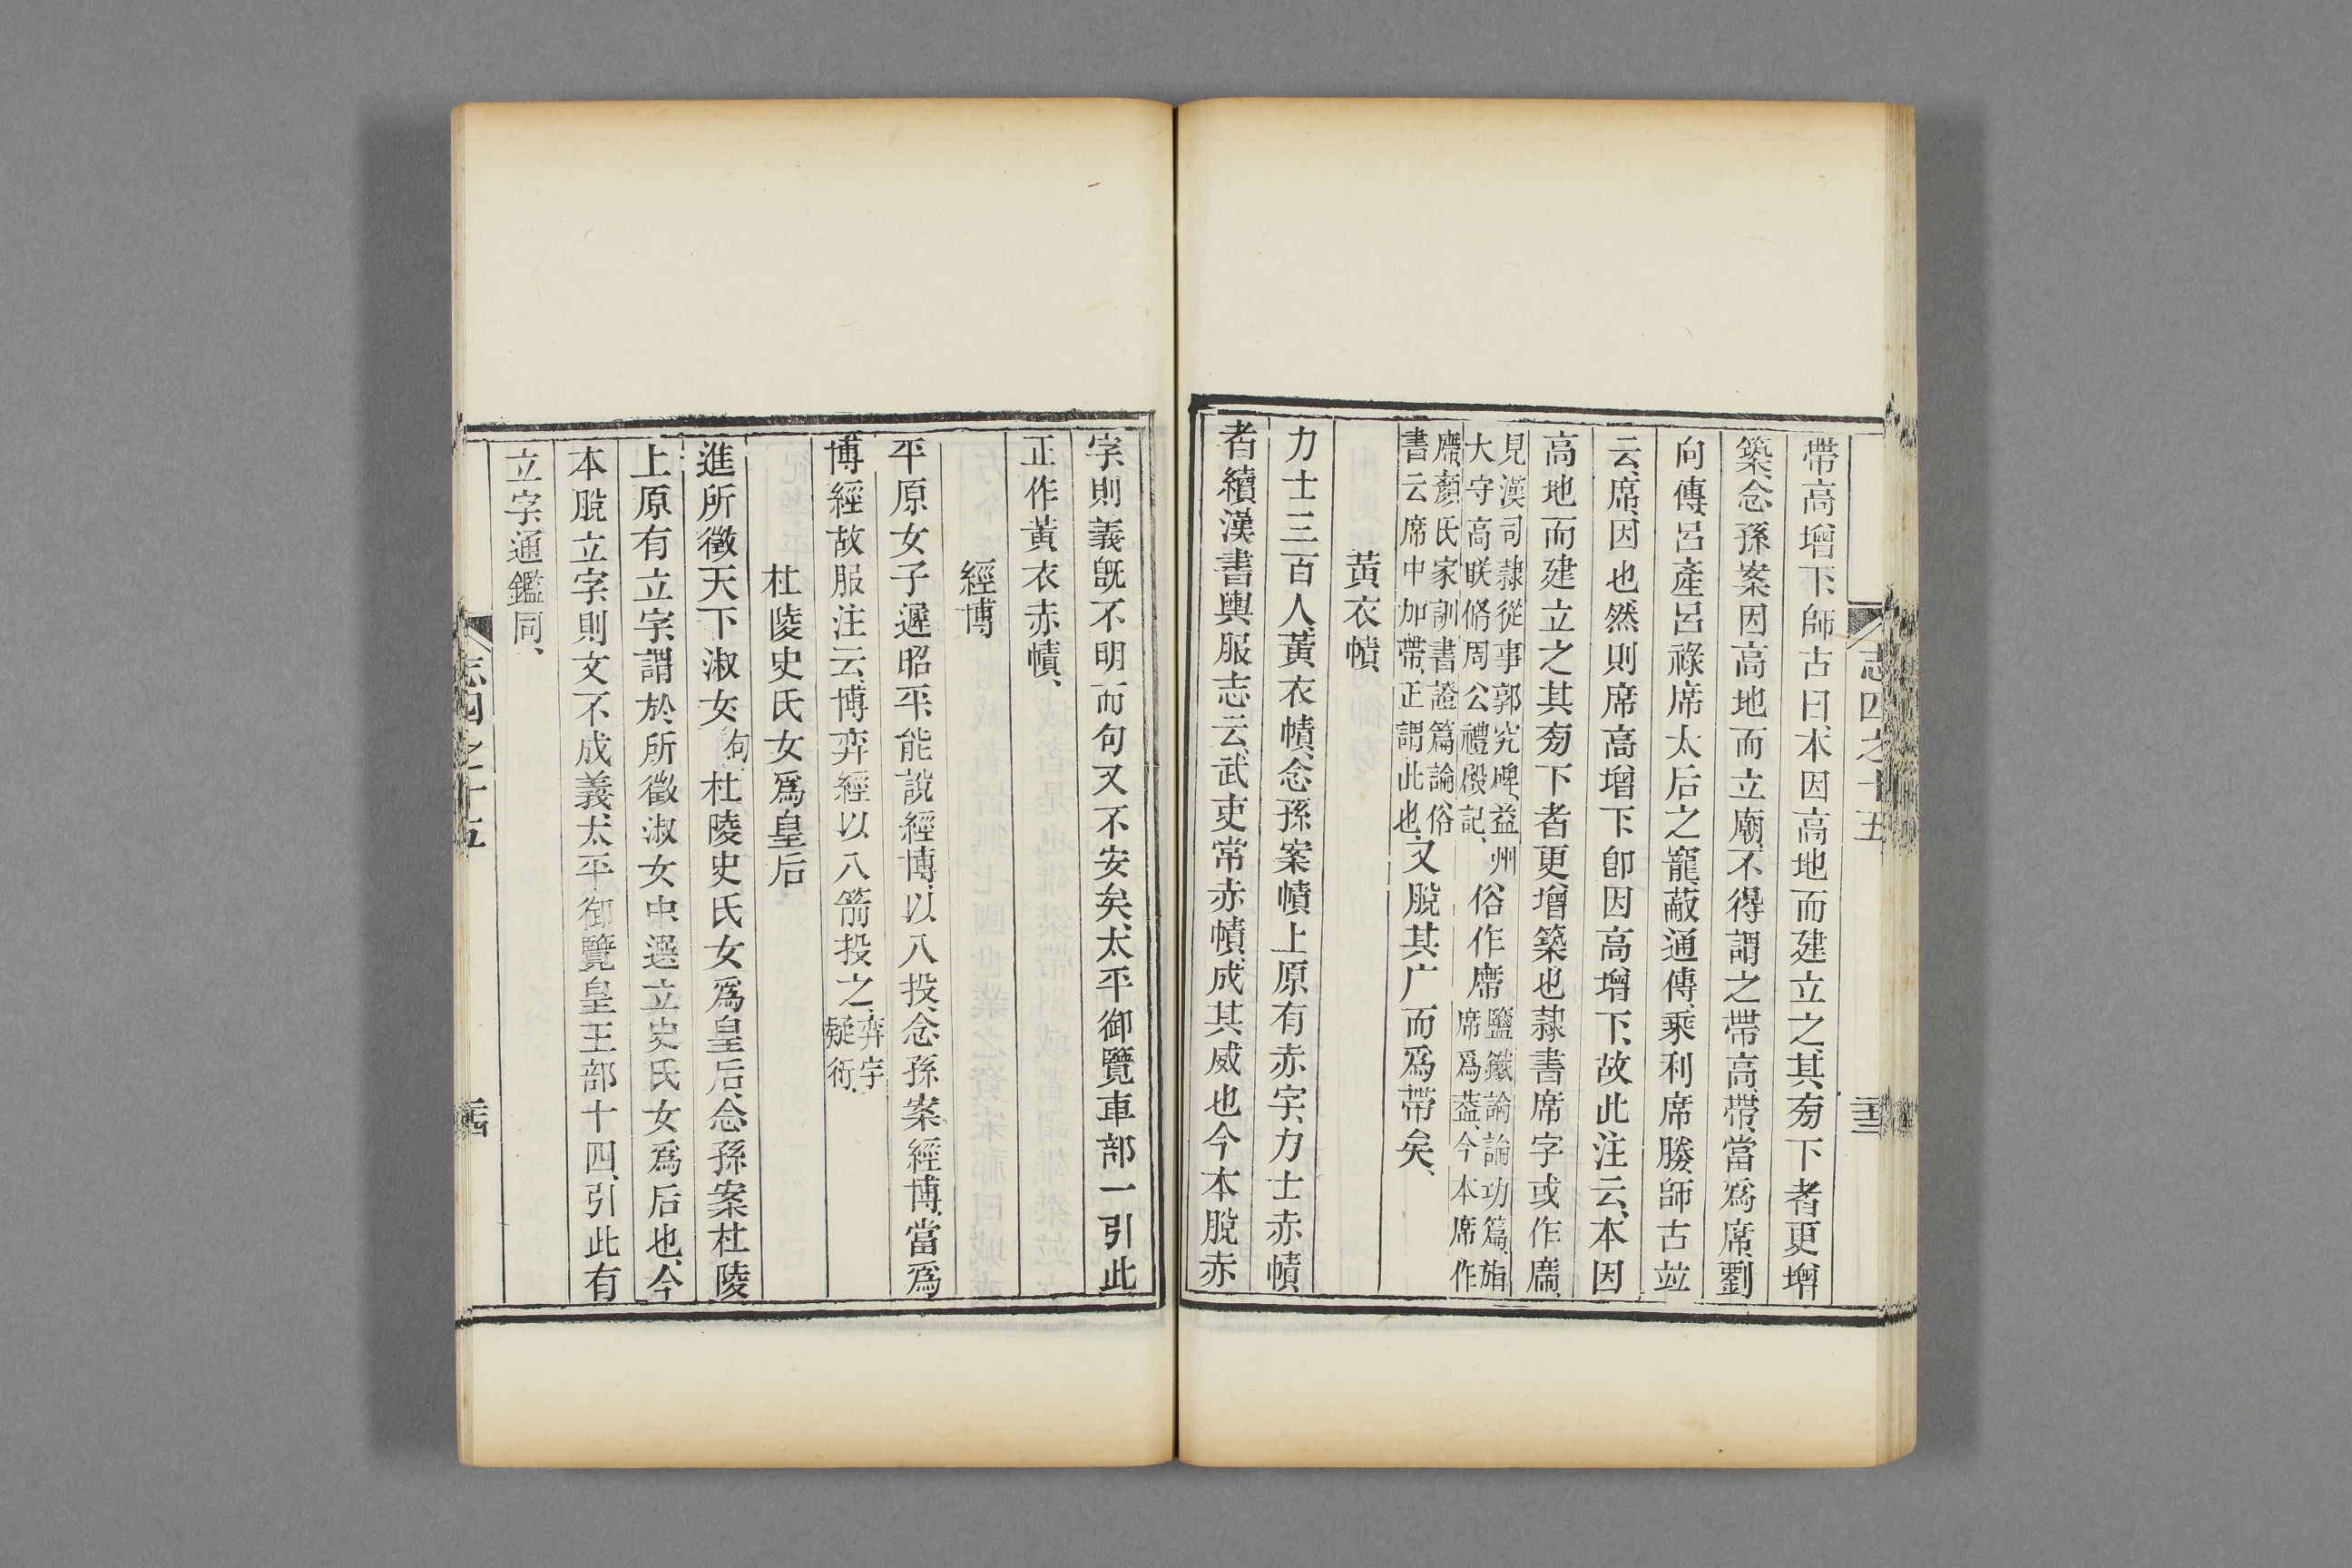 志四之十五
三三
帶高增下、師古曰、本因高地而建立之、其旁下者更增
築、念孫案因高地而立廟、不得謂之帶高、帶當爲席、劉
向傳、呂產呂祿席太后之寵、蔽通傳、乘利席勝、師古竝
云、席、因也、然則席高增下、卽因高增下、故此注云、本因
高地而建立之、其旁下者更增築也、隸書席字或作廗、
見漢司隸從事郭究碑、益州
大守高朕脩周公禮殿記、俗作廗鹽鐵論論功篇、旃
席爲葢、今本席作
廗、顏氏家訓書證篇論俗
書云、席中加帶、正謂此也、又脫其广而爲帶矣、
黃衣幘
力士三百人、黃衣幘、念孫案幘上原有赤字、力士赤幘
者、續漢書輿服志云、武吏常赤幘、成其威也、今本脫赤
字、則義旣不明、而句又不安矣、太平御覽車部一引此
正作黃衣赤幘、
經博
平原女子遲昭平、能說經博、以八投、念孫案經博、當爲
博經、故服注云、博弈經以八箭投之、弈字
疑衍、
杜陵史氏女爲皇后
進所徵天下淑女、句杜陵史氏女爲皇后、念孫案杜陵
上原有立字、謂於所徵淑女中、選立史氏女爲后也、今
本脫立字、則文不成義、太平御覽皇王部十四、引此有
立字、通鑑同、
志四之十五